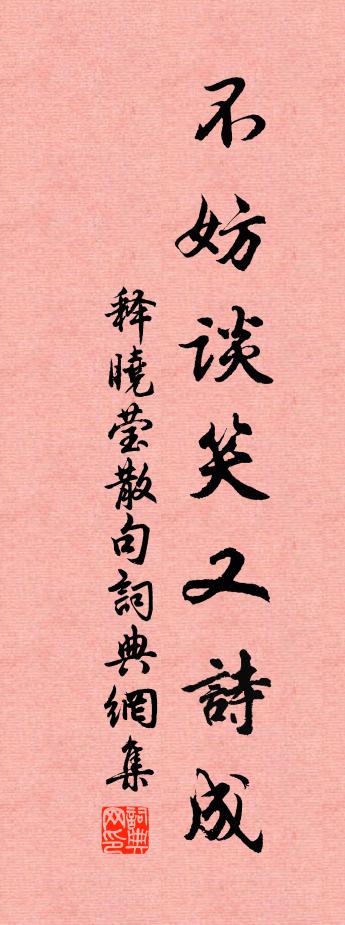 不妨談笑又詩成
释曉莹散句詞典網集
詞典网印